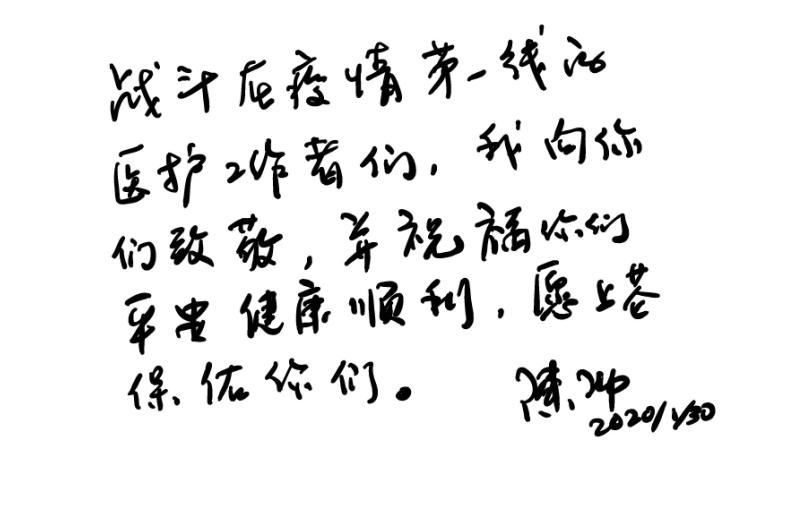 战斗在疫情第一线的
医护工作者们，我向你
们致敬，并祝福你们
平安健康顺利，愿上苍
保佑你们。 陈坤
2020/1/30